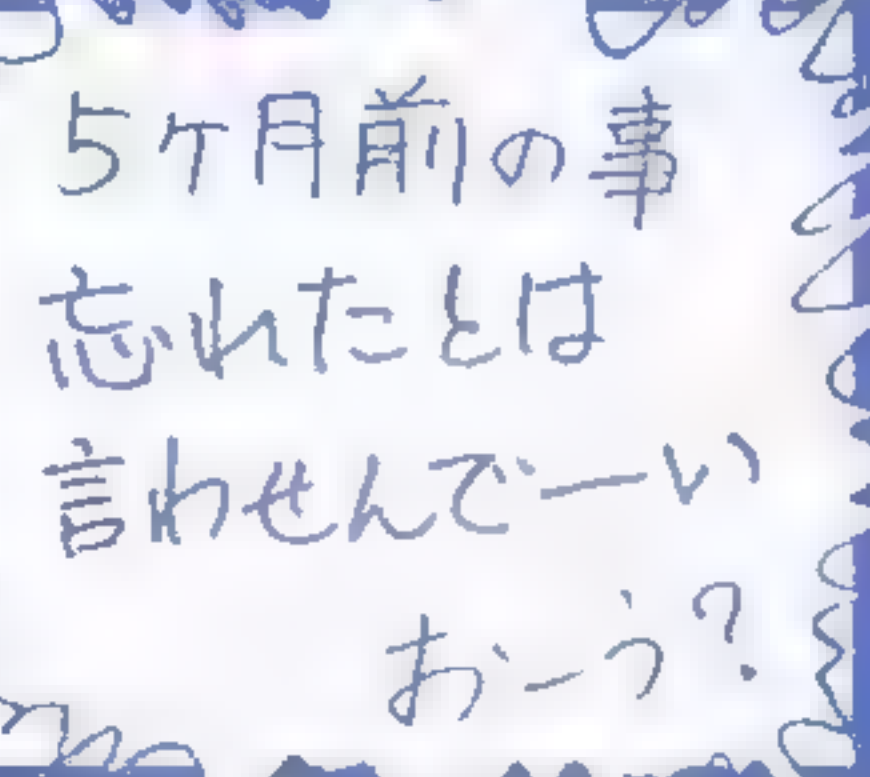 5ケ月前の事
忘れたとは
言わせんでーい
おーう?